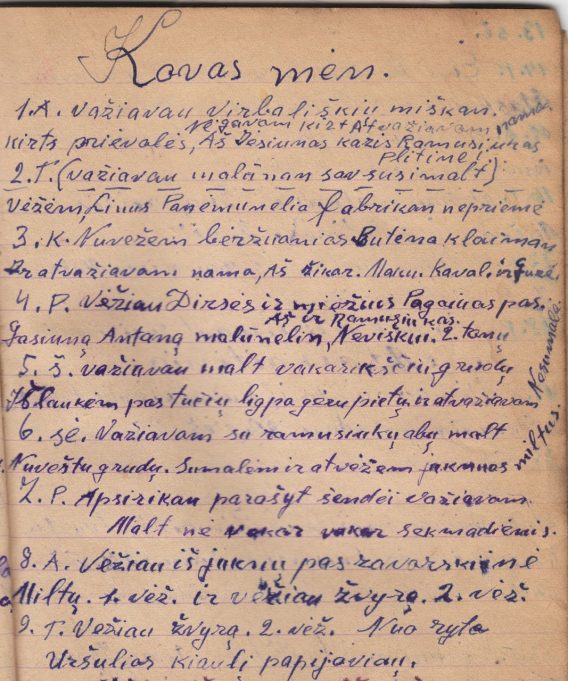 Kovas mėn.
1. A. važiavau virbališkiu miškan.
Negavom kirt Atvažiavom nama.
kirts prievolės, Aš Jesiunas kazis Ramusiukas
Plitinė.
2. T. (važiavau malūnan sav susimalt)
Vėžėm Linus Panemunelia fabrikan nepriėmė
3. K. Nuvežėm beržuonias Butėna klaiman
Ir atvažiavom nama, Aš žikar. Kaval. ir
4. P. Vėžiau Dirsės ir miėžius Pagamas pas.
Aš ir Ramusiukas.
Gasiuną Antaną malūnelin, Neviškiu. 2. tonų
5. Š. važiavau malt vakarikščių grudų Nesumalė.
Išlaukėm pas tučių ligpagėru pietų ir atvažiavom
6. sė. Važiavom su ramusiukų abu malt
Nuvėštu grudų. Sumalėm ir atvėžėm jaknuas miltus.
7. P. Apsirikau parašyt šendėi važiavom
Malt nė vakar vakar sekmadiėnis.
8. A. Vėžiau iš jaknių pas zavorskiinė
Miltų. 1. vėž. ir vėžiau žvyrą. 2. vėž.
9. T. Vėžiau žvyrą. 2. vėž. Nuo ryta
Uršulios kiauli papijoviau.